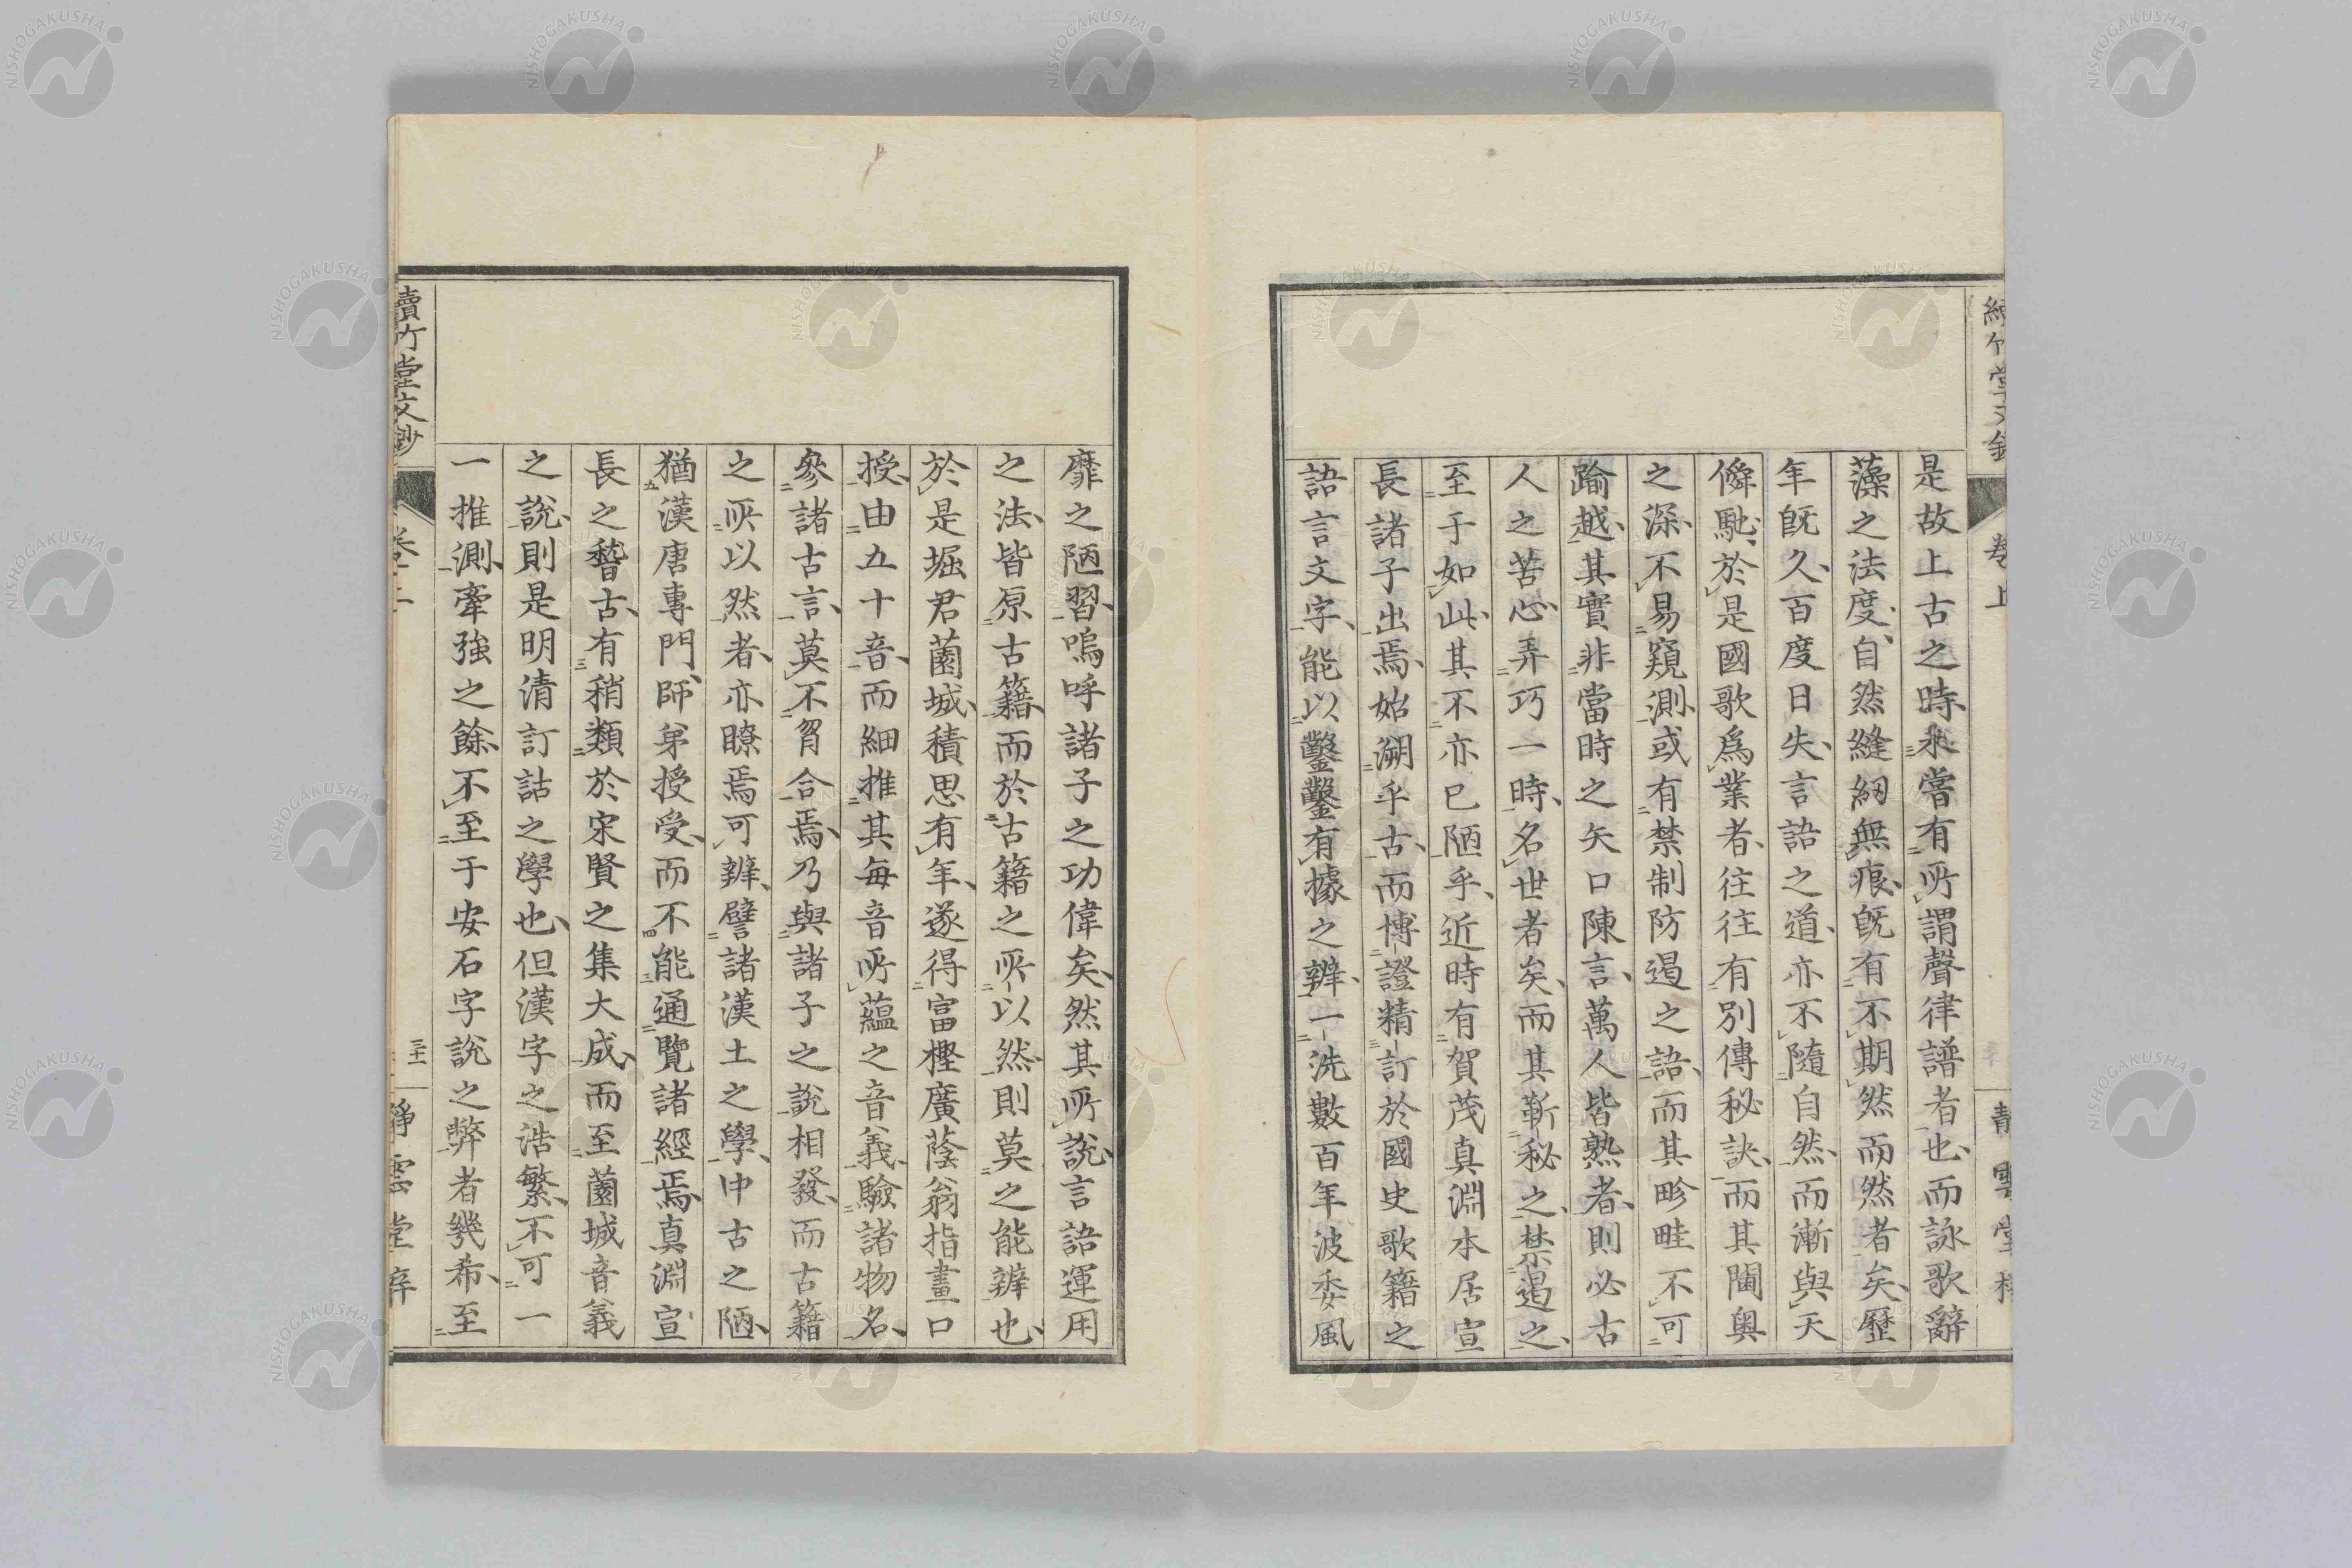 續竹堂文鈔
卷上
靜雲堂梓
是故上古之時、未嘗有所謂聲律譜者也、而詠歌辭
藻之法度、自然縫紉無痕、旣有不期然而然者矣、歷
年旣久、百度日失、言語之道、亦不隨自然、而漸與天
僢馳、於是國歌爲業者、往往有別傳秘訣、而其閫奧
之深、不易窺測、或有禁制防遏之語、而其畛畦不可
踰越、其實非當時之矢口陳言、萬人皆熟者、則必古
人之苦心弄巧一時、名世者矣、而其靳秘之、禁遏之、
至于如此、其不亦已陋乎、近時有賀茂真淵本居宣
長諸子出焉、始溯乎古、而博證精訂於國史歌籍之
語言文字、能以鑿鑿有據之辨、一洗數百年波委風
靡之陋習、嗚呼諸子之功偉矣、然其所說、言語運用
之法、皆原古籍、而於古籍之所以然、則莫之能辨也、
於是堀君薗城、積思有年、遂得富樫廣蔭翁指畫口
授、由五十音、而細推其每音所蘊之音義、驗諸物名、
參諸古言、莫不胥合焉、乃與諸子之說相發、而古籍
之所以然者、亦瞭焉可辨、譬諸漢土之學、中古之陋、
猶漢唐專門、師弟授受、而不能通覽諸經焉、真淵宣
長之稽古、有稍類於宋賢之集大成、而至薗城音義
之說、則是明清訂詁之學也、但漢字之浩繁、不可一
一推測、牽強之餘、不至于安石字說之弊者幾希、至
續竹堂文鈔
卷上
三十一
靜雲堂梓
NISHOGAKUSHA